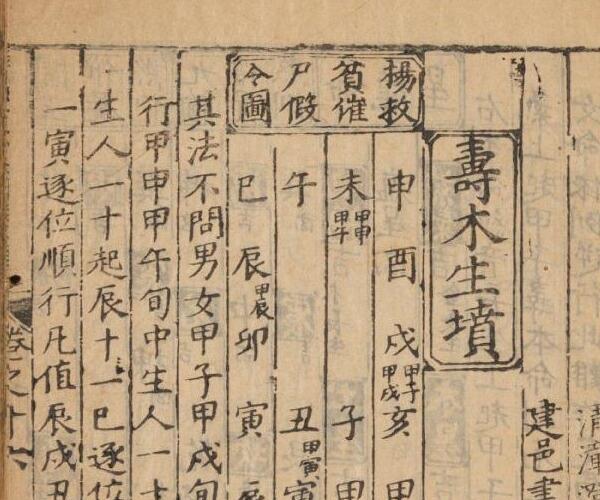 清漳
建邑書
壽木生墳
楊救
貧催
尸假
令圖
申酉戌甲子甲戌亥甲
未甲申甲午子甲
午丑甲寅寅
巳辰甲辰卯寅辰
其法不問男女甲子甲戌旬
行甲申甲午旬中生人一十
生人一十起辰十一巳逐位
一寅逐位順行凡值辰戌丑
卷之十六